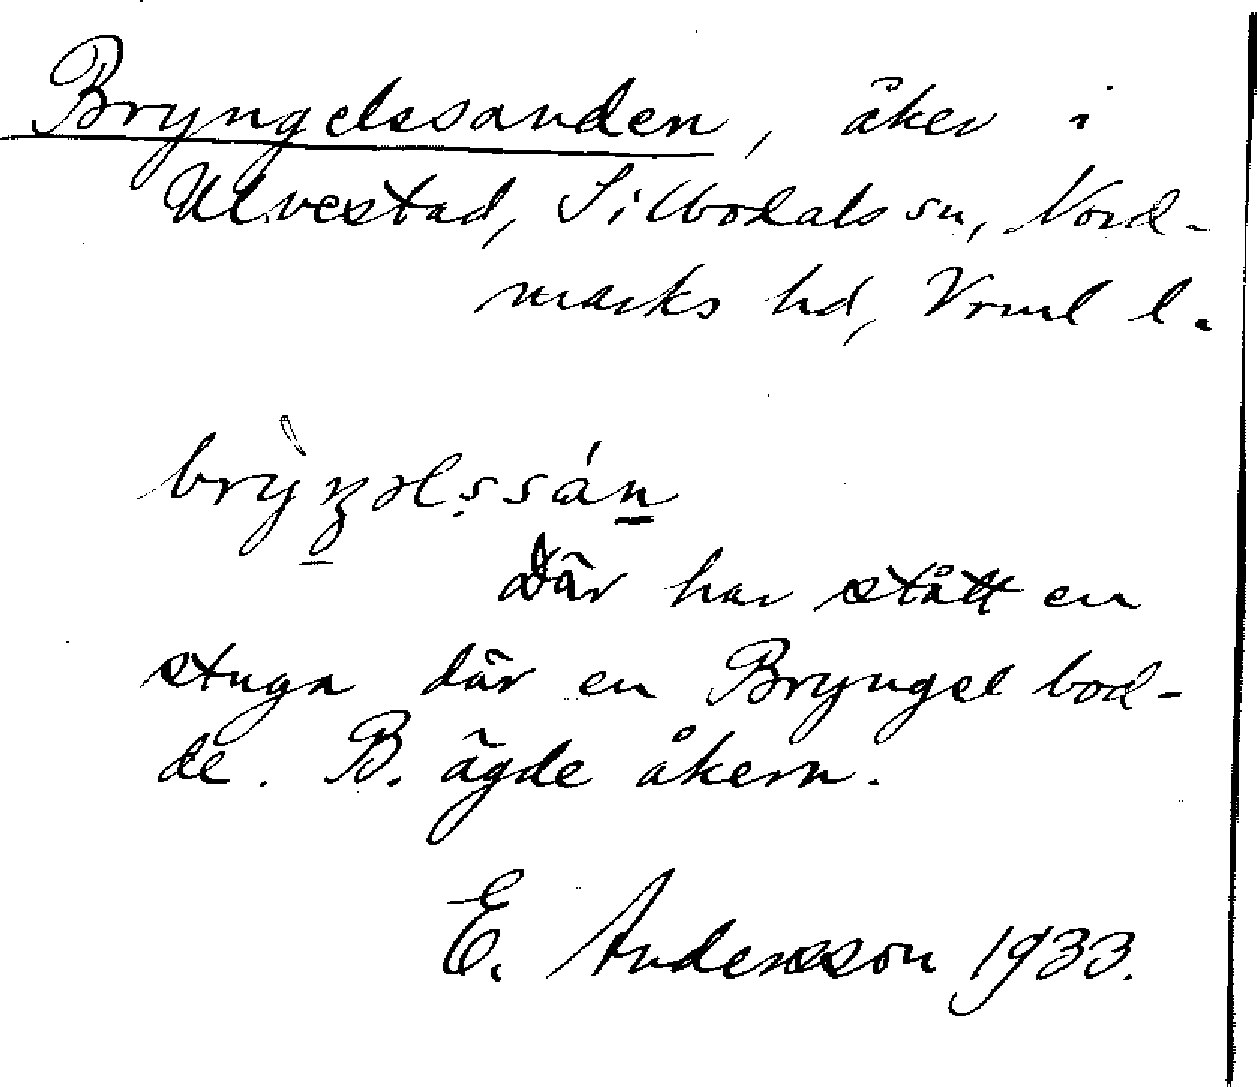 Bryngelssanden, åker i
Ulvestad, Silbodals sn, Nord-
marks hd, Vrml l.
brỳŋəlssán
Där har stått en
stuga där en Bryngel bod-
de. B. ägde åkern.
E. Andersson 1933.